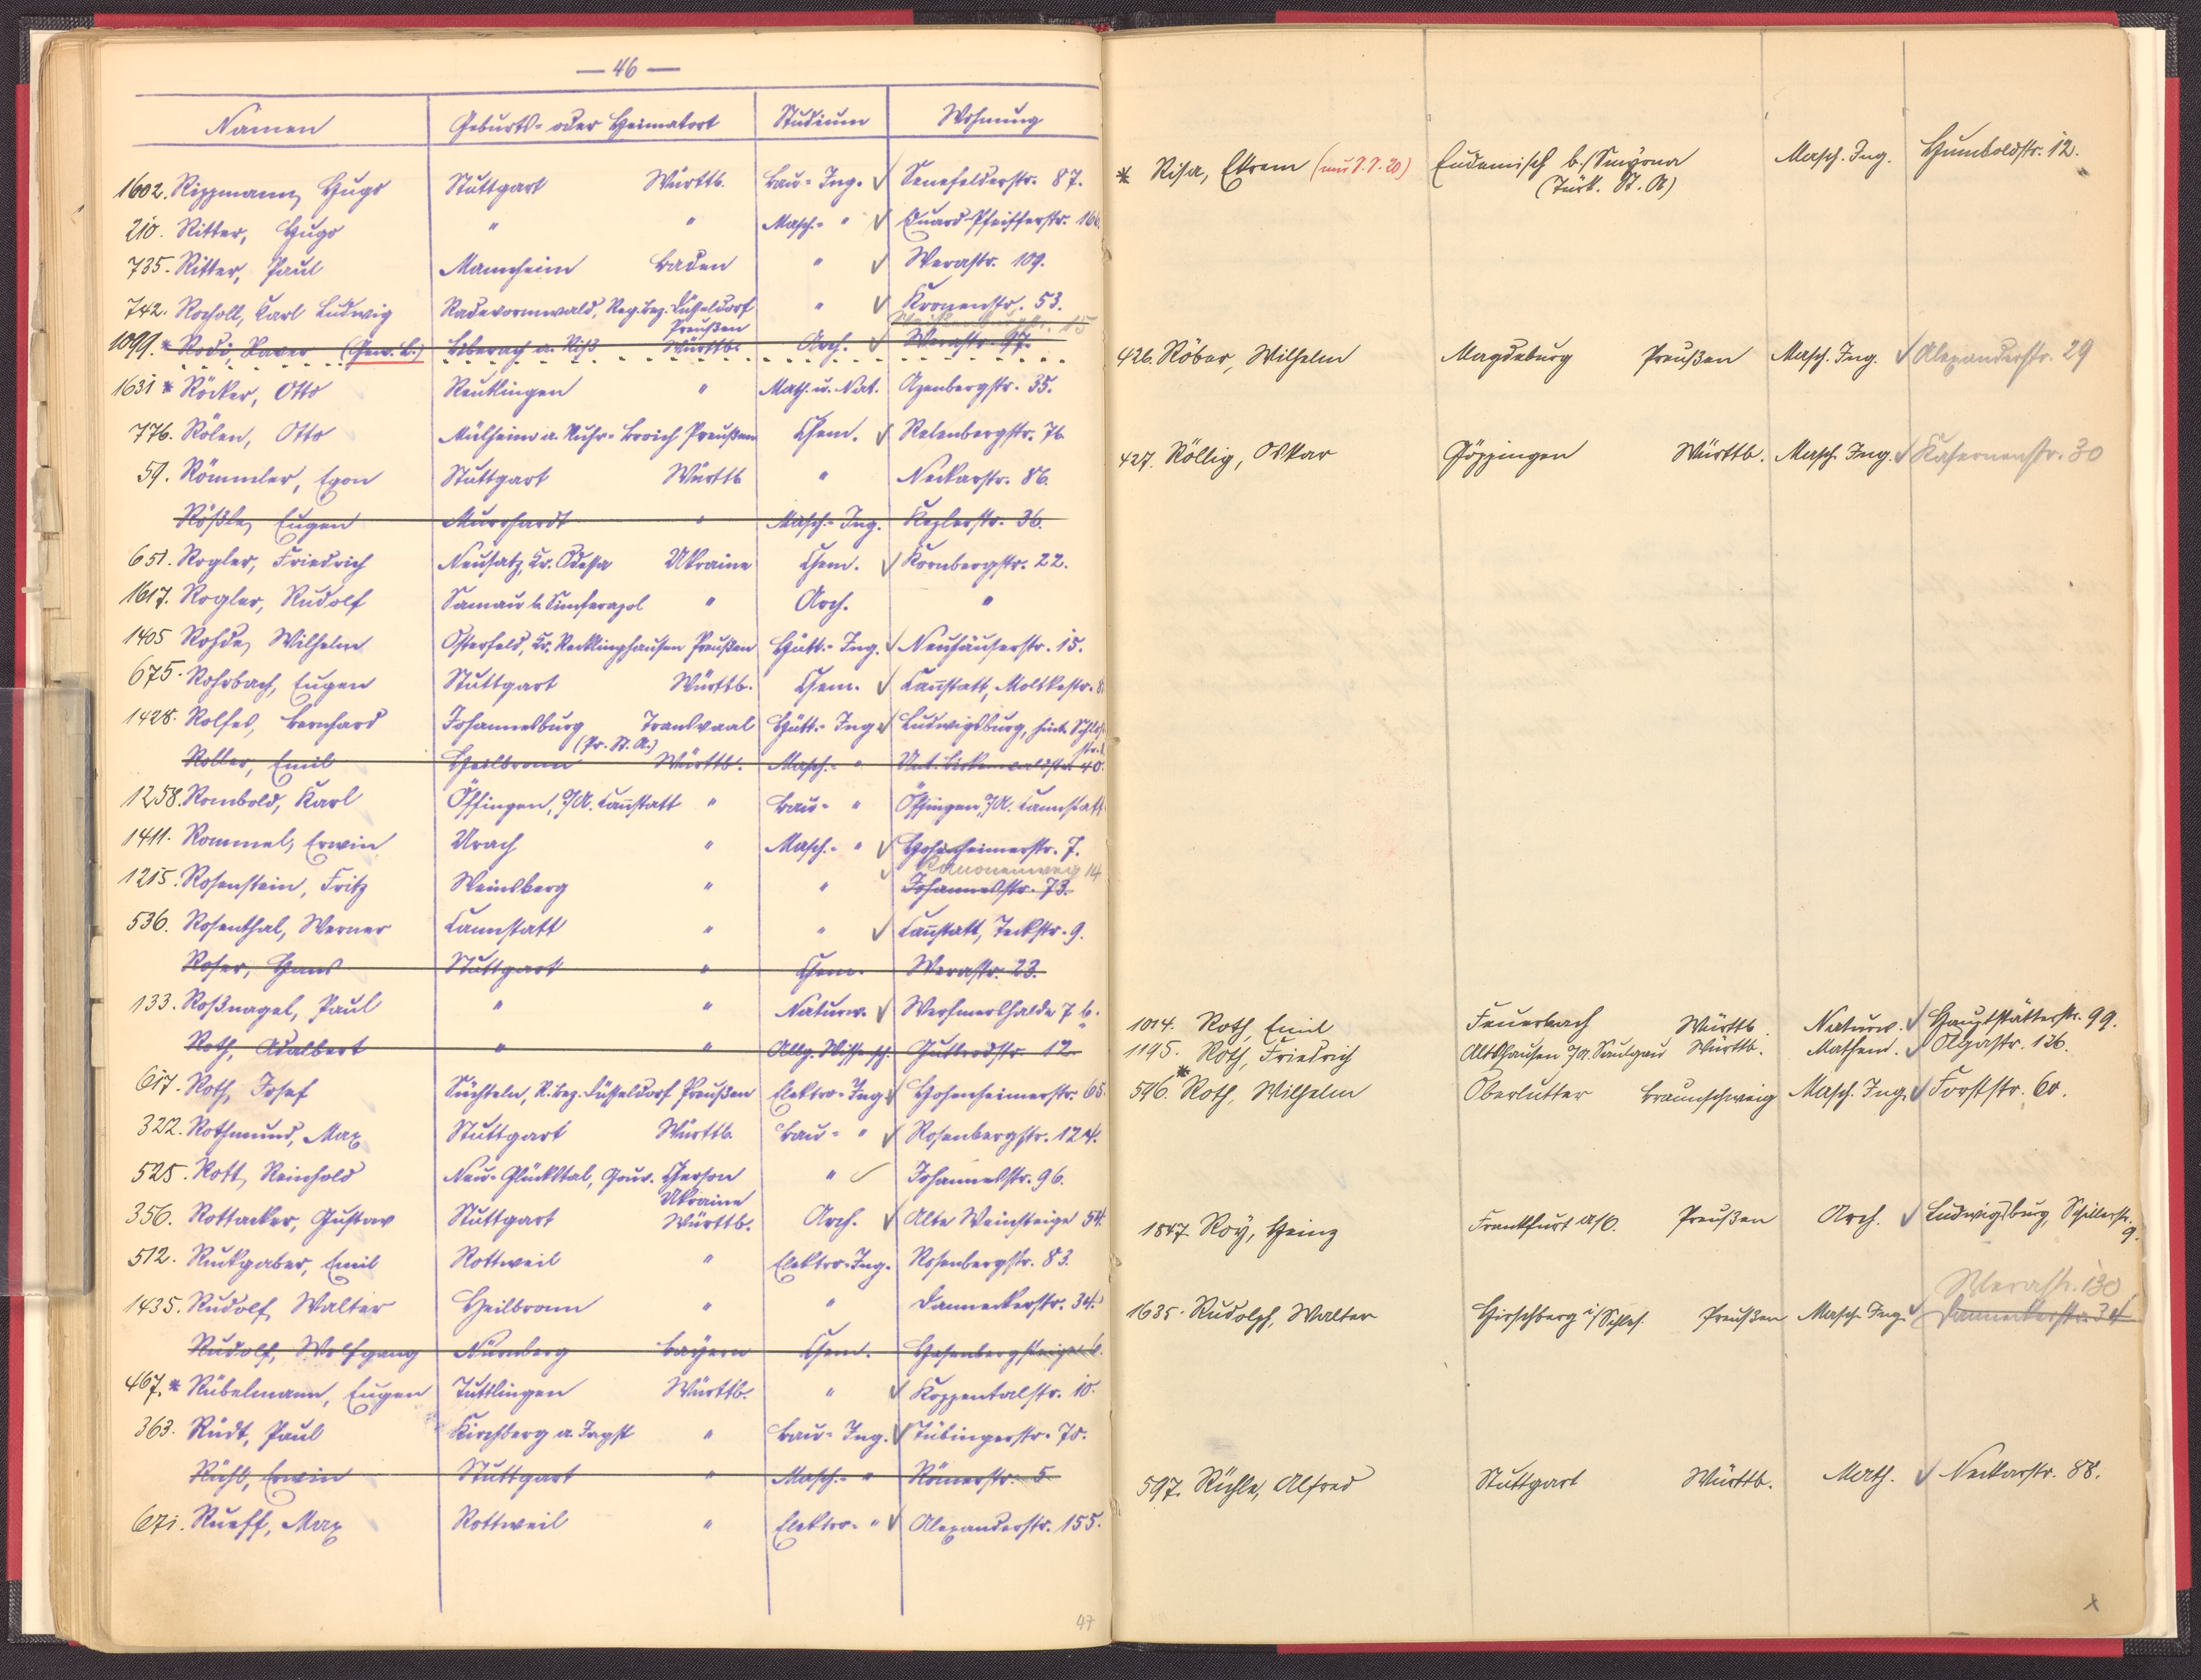 — 46 —
Namen Geburts- oder Heimatort Studium Wohnung
1602. Rippmann, Hugo Stuttgart Württb. Bau-Ing. √ Senefelderstr. 87.
210. Ritter, Hugo " " Masch.- " √ Eduard-Pfeifferstr.
735. Ritter, Paul Mannheim Baden " √ Werastr. 109.
742. Rocholl, Carl Ludwig Radevormwald, Reg. bez. Düsseldorf " √ Kronenstr. 53.
Preußen 15
1099. * Rodi, Xaver (Gew. L.) Biberach a. Riß Württb. Arch. √ Werastr. 97.
1631 * Röcker, Otto Reutlingen " Math. u. Nat. Azenbergstr. 35.
776. Rölen, Otto Mülheim a. Ruhr-Broich Preußen Chem. √ Relenbergstr. 76
59. Römmler, Egon Stuttgart Württb " Neckarstr. 86.
Rößle, Eugen Murrhardt " Masch.-Ing. Keplerstr. 36.
651. Rogler, Friedrich Neusatz, Kr. Odessa Ukraine Chem. √ Kornbergstr. 22.
1617. Rogler, Rudolf b. Simferopol " Arch. "
1405 Rohde, Wilhelm Osterfeld, Kr. Recklinghausen Preußen Hütt.-Ing. √ Neuhäuserstr. 15.
675. Rohrbach, Eugen Stuttgart Württb. Chem. √ Cannstatt, Moltkestr.
1428. Rolfes, Bernhard Johannesburg Transvaal Hütt.-Ing. √ Ludwigsburg, hint. Schloß-
(Pr. St. A.) str.
Roller, Emil Heilbronn Württb. Masch.- " Unt. Birkenwaldstr. 40.
1258. Rombold, Karl Öffingen, O/A. Cannstatt " Bau- " Öffingen, O/A. Cannstatt
1411. Rommel, Erwin Urach " Masch.- " √ Hohenheimerstr. 7.
Kanonenweg 14
1215. Rosenstein, Fritz Weinsberg " " √ Johannesstr. 73.
536. Rosenthal, Werner Cannstatt " " √ Cannstatt, Teckstr. 9.
Roser, Hans Stuttgart " Chem. Werastr. 23.
133. Roßnagel, Paul " " Naturw. √ Werfmershalde 7 b.
Roth, Adalbert " " Allg. Wissensch. Gutbrodstr. 12.
617. Roth, Josef Süchteln, R. bez. Düsseldorf Preußen Elektro-Ing. √ Hohenheimerstr. 65.
322. Rothmund, Max Stuttgart Württb. Bau- " √ Rosenbergstr. 124.
525. Rott, Reinhold Neu-Glückstal, Gouv. Cherson " √ Johannesstr. 96.
Ukraine
356. Rottacker, Gustav Stuttgart Württb. Arch. √ Alte Weinsteige 54.
512. Ruckgaber, Emil Rottweil " Elektro-Ing. Rosenbergstr. 83.
1435. Rudolf, Walter Heilbronn " " Danneckerstr. 34.
Rudolf, Wolfgang Nürnberg Bayern Chem. Hasenbergsteige 6.
467. * Rübelmann, Eugen Tuttlingen Württb. " √ Koppentalstr. 10.
363. Rüdt, Paul Kirchberg a. Jagst " Bau-Ing. √ Tübingerstr. 70.
Rühl, Erwin Stuttgart " Masch.- " Römerstr. 5
671. Rueff, Max Rottweil " Elektro- " √ Alexanderstr. 155.
47
* Risa, Ekrem Eudemisch b./Smyrna Masch. Ing. Humboldstr. 12.
(Türk. St. A)
426. Röber, Wilhelm Magdeburg Preußen Masch. Ing. √ Alexanderstr. 29
427. Röllig, Oskar Göppingen Württb. Masch. Ing. √ Kasernenstr. 30
1014. Roth, Emil Feuerbach Württb. Naturw. √ Hauptstätterstr. 99.
1195. Roth, Friedrich Altshausen O/A. Saulgau Württb. Mathem. √ Olgastr. 136.
596. * Roth, Wilhelm Oberlutter Braunschweig Masch. Ing. √ Forststr. 60.
1847. Roy, Heinz Frankfurt a/O. Preußen Arch. √ Ludwigsburg, Schillerstr.
9.
Werastr. 130
1635. Rudolph, Walter Hirschberg i/Schles. Preußen Masch. Ing. √ Danneckerstr. 34
597. Rühle, Alfred Stuttgart Württb. Math. √ Neckarstr. 88.
x